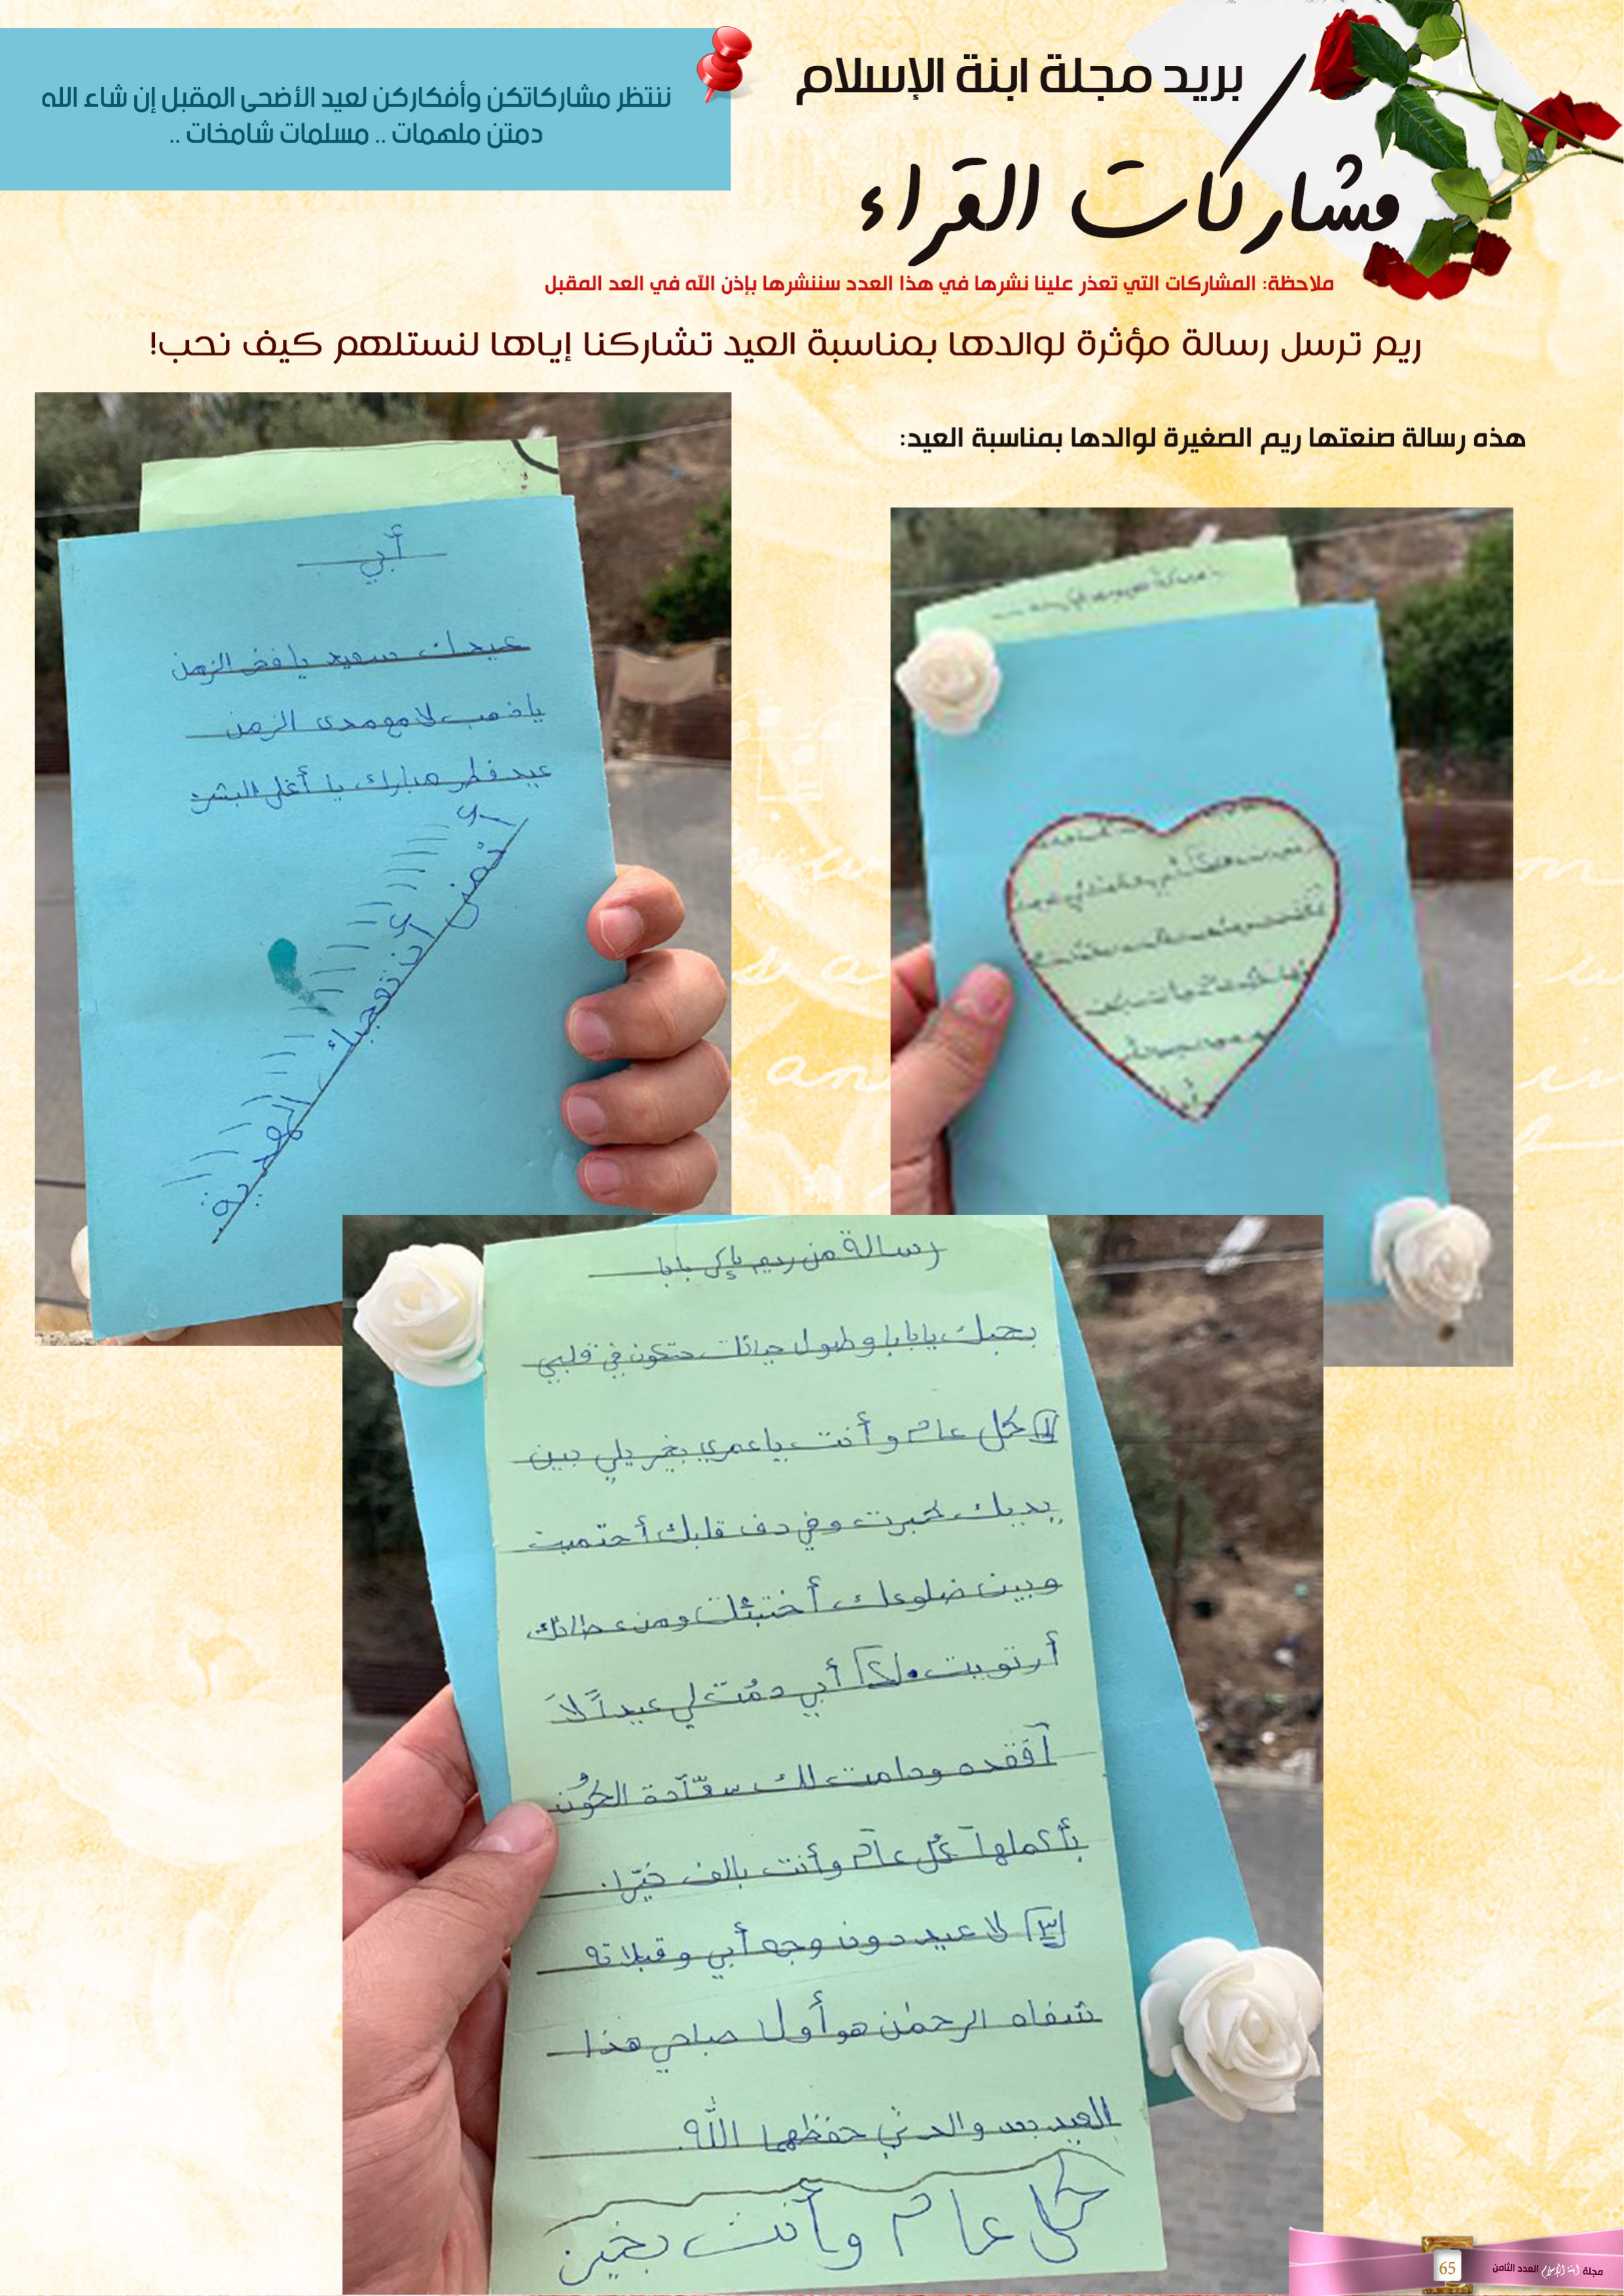 بريد مجلة ابنة الإسلام
مشاركات القراء
ننتظر مشاركاتكن وأفكاركن لعيد الأضحى المقبل إن شاء الله
دمتن ملهمات .. مسلمات شامخات ..
ملاحظة: المشاركات التي تعذر علينا نشرها في هذا العدد سننشرها بإذن الله في العد المقبل
ريم ترسل رسالة مؤثرة لوالدها بمناسبة العيد تشاركنا إياها لنستلهم كيف نحب!
هذه رسالة صنعتها ريم الصغيرة لوالدها بمناسبة العيد:
أبي
عيدك سعيد يا فخر الزمن
يا ذهب لامع مدى الزمن
عيد فطر مبارك يا أغلى البشر
أتمنى أن تعجبك الهدية
رسالة من ريم إلى بابا
بحبك يا بابا وطول حياتك حتكون في قلبي
١ كل عام وأنت يا عمري بخير يلي بين
يديك كبرت وفي دف قلبك أحتميت
وبين ضلوعك أختبئت ومن عطائك
أرتويت. ٢ أبي دمُت لي عيداً لاَ
آفقده ودامت لك سعّآدة الكوُن
بأكملهآ كُل عآم وأنت بالف خيّر.
٣ لا عيد دون وجه أبي وقبلاته
شفاه الرحمٰن هو أول صباحي هذا
العيد بعد والدتي حفظهما اللّٰه.
كل عام وأنت بخير
مجلة ابنة الإسلام العدد الثامن
65